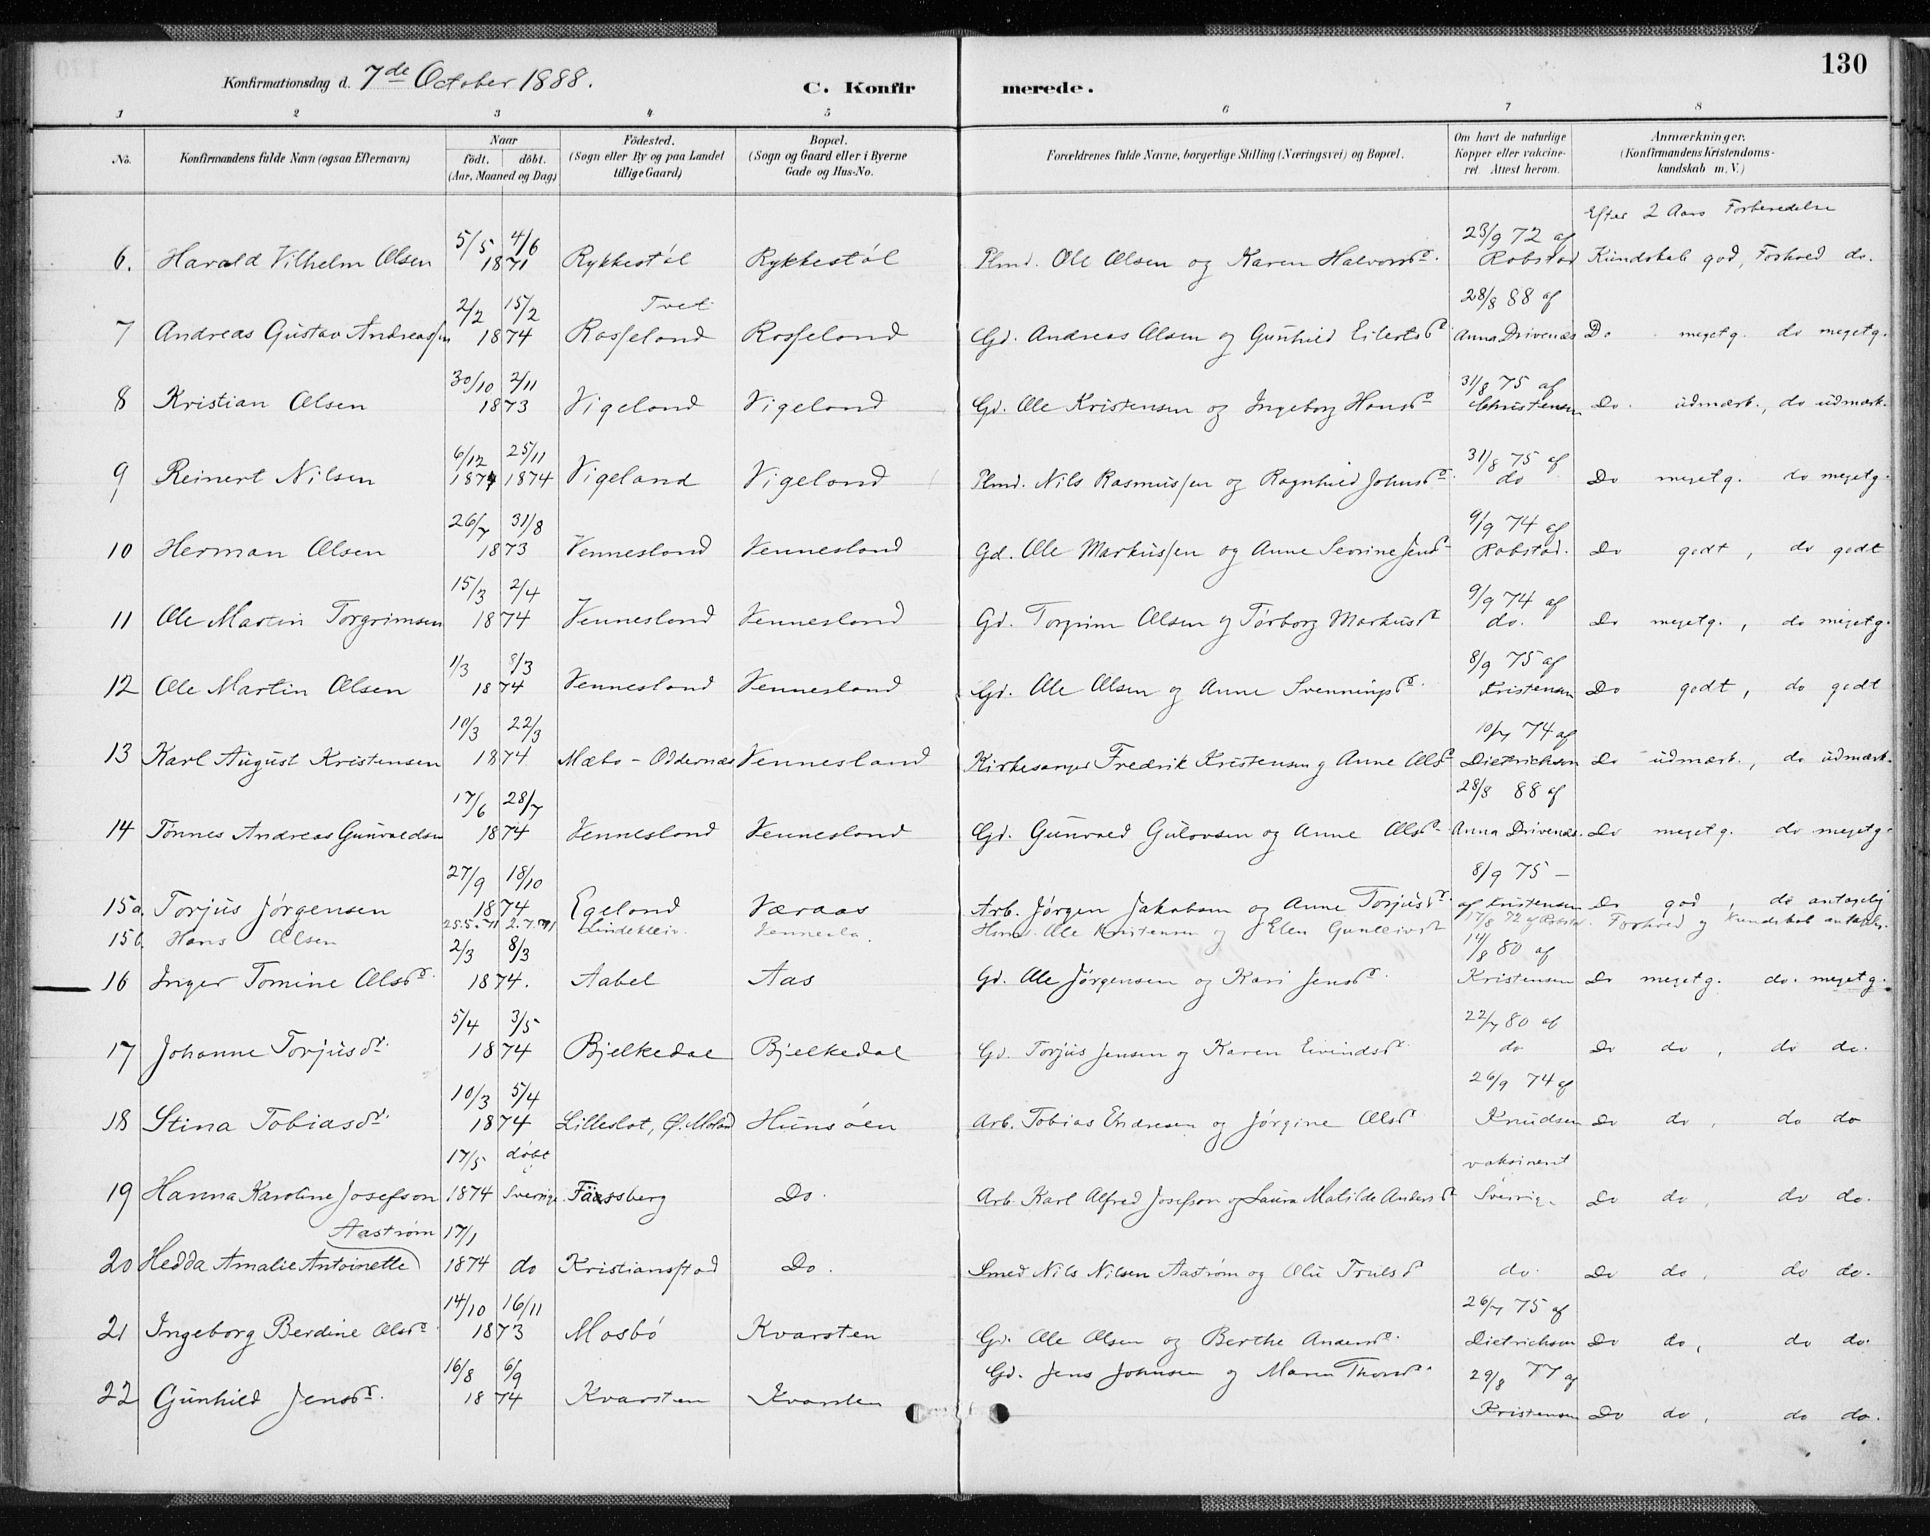 130
Konfirmationsdag d. 7de October 1888. C. Konfirmerede.
1 2 3 4 5 6 7 8
No. Konfirmandens fulde Navn (ogsaa Efternavn) Naar født. døbt. (Aar, Maaned og Dag) Fødested. (Sogn eller By og paa Landet tillige Gaard) Bopæl. (Sogn og Gaard eller i Byerne Gade og Hus-No. Forældrenes fulde Navne, borgerlige Stilling (Næringsvei) og Bopæl. Om havt de naturlige Kopper eller vakcineret. Attest herom. Anmærkninger. (Konfirmandens Kristendomskundskab m. V.)
Efter 2 Aars Forberedelse
6. Harald Vilhelm Olsen 5/5 4/6 1871 Rykkestøl Rykkestøl Plmd. Ole Olsen og Karen Halvorsd. 23/9 72 af Robstad Kundskab god, Forhold do.
7 Andreas Gustav Andreassen 2/2 15/2 1874 Tvet Rosseland Rosseland Gd. Andreas Olsen og Gunhild Eilertsd 28/8 88 af Anna Drivenæs Do megetg. do megetg.
8 Kristian Olsen 30/10 2/11 1873 Vigeland Vigeland Gd. Ole Kristensen og Ingeborg Hansd 31/8 75 af Christensen Do. udmærk., do udmærk.
9 Reinert Nilsen 6/12 25/11 1874 1874 Vigeland Vigeland Plmd. Nils Rasmussen og Ragnhild Johnsd. 31/8 75 af do Do megetg. do megetg.
10 Herman Olsen 26/7 31/8 1873 Vennesland Vennesland Gd. Ole Markussen og Anne Severine Jensd 9/9 74 af Robstad. Do godt, do godt
11 Ole Martin Torgrimsen 15/3 2/4 1874 Vennesland Vennesland Gd. Torgrim Olsen og Torborg Markusd 9/9 74 af do. Do megetg., do megetg.
12 Ole Martin Olsen 1/3 8/3 1874 Vennesland Vennesland Gd. Ole Olsen og Anne Svenningsd. 8/9 75 af Kristensen Do godt, do godt
13 Karl August Kristensen 10/3 22/3 1874 Mæbo - Oddernæs Vennesland Kirkesanger Fredrik Kristensen og Anne Olsd 10/7 74 af Dietrichson Do udmærk., do udmærk.
14 Tønnes Andreas Gunvaldsen 17/6 28/7 1874 Vennesland Vennesland Gd. Gunvald Gulovsen og Anne Olsd. 28/8 88 af Anna Drivenæs. Do megetg. do megetg.
15a. Torjus Jørgensen 27/9 18/10 1874 Egeland Væraas Arb. Jørgen Jakobsen og Anne Torjusd. 8/9 75 - af Kristensen Do god, do antagelig
15b. Hans Olsen 25.5.71 2.7.71 Lindekleiv. Vennesla. Hmd. Ole Kristensen og Elen Gunleivsd 17/8 72 af Robstad. Forhold og Kundskab antagelig.
16 Inger Tomine Olsd. 2/3 8/3 1874. Aabel Aas Gd. Ole Jørgensen og Kari Jensd. 14/8 80 af Kristensen Do megetg. do. megetg.
17 Johanne Torjusd. 5/4 3/5 1874 Bjelkedal Bjelkedal Gd. Torjus Jensen og Karen Eivindsd. 22/7 80 af do Do do, do do.
18 Stina Tobiasd. 10/3 5/4 1874 Lilleslot, Ø. Moland Hunsøen Arb. Tobias Endresen og Jørgine Olsd 26/9 74 af Knudsen Do do, do do
19 Hanna Karoline Josefson 17/5 1874 døbt i Sverige Fässberg Do. Arb. Karl Alfred Josefson og Laura Matilde Andersd vaksinert Sverrig. Do do, do do.
20 Hedda Amalie Antoinette Aastrøm 17/1 1874 do Kristiansstad Do. Smed Nils Nilsen Aastrøm og Olu Trulsd do. Do do, do do.
21 Ingeborg Berdine Olsd. 14/10 16/11 1873 Mosbø Kvarsten Gd. Ole Olsen og Berthe Andersd. 26/7 75 af Dietrichson Do do, do do.
22 Gunhild Jensd. 16/8 6/9 1874 Kvarsten Kvarsten Gd. Jens Johnsen og Maren Thorsd. 29/8 77 af Kristensen Do do, do do.